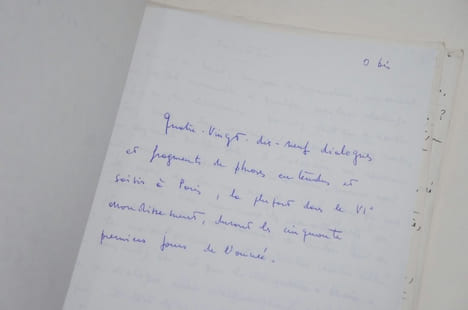 0 bis
Quatre-Vingt-dix-neuf dialogues
et fragments de phrases entendus et
saisis à Paris, la plupart dans le VIe
arrondissement, durant les cinquante
premiers jours de l'année.